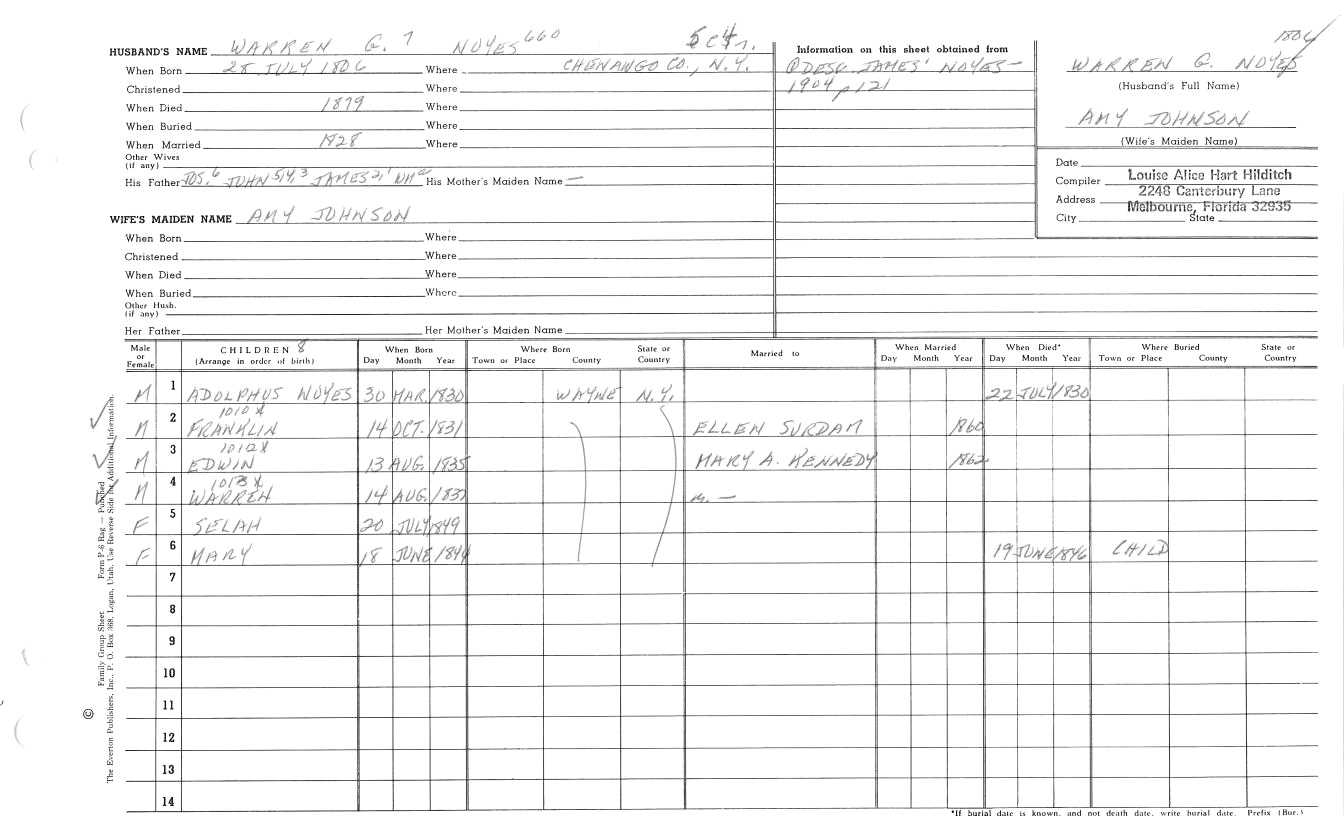 1806
HUSBAND'S NAME WARREN G. 7 NOYES 660
When Born 28 JULY 1806 Where CHENANGO CO., N.Y.
Christened Where
When Died 1879 Where
When Buried Where
When Married 1828 Where
Other Wives
(if any)
His Father JOS.6 JOHN 5,4,3 JAMES 2,1 His Mother's Maiden Name —
WIFE'S MAIDEN NAME AMY JOHNSON
When Born Where
Christened Where
When Died Where
When Buried Where
Other Hush.
(if any)
Her Father Her Mother's Maiden Name
Information on this sheet obtained from
DESC. JAMES' NOYES —
1904 p 121
WARREN G. NOYES
(Husband's Full Name)
AMY JOHNSON
(Wife's Maiden Name)
Date
Compiler Louise Alice Hart Hilditch
Address 2248 Canterbury Lane
Melbourne, Florida 32935
City State
Male or Female CHILDREN 8 (Arrange in order of birth) When Born Day Month Year Where Born Town or Place County State or Country Married to When Married Day Month Year When Died* Day Month Year Where Buried Town or Place County State or Country
M 1 ADOLPHUS NOYES 30 MAR. 1830 WAYNE N.Y. 22 JULY 1830
1010 X
M 2 FRANKLIN 14 OCT. 1831 ELLEN SURDAM 1860
1012 X
M 3 EDWIN 13 AUG. 1835 MARY A. KENNEDY 1862
1013 X
M 4 WARREN 14 AUG. 1837 m. —
F 5 SELAH 20 JULY 1849
F 6 MARY 18 JUNE 1844 19 JUNE 1846 CHILD
7
8
9
10
11
12
13
14
*If burial date is known, and not death date, write burial date. Prefix (Bur.)
© The Everton Publishers, Inc., P. O. Box 368, Logan, Utah. Use Reverse Side for Additional Information.
Family Group Sheet Form P-8 Bag — Punched